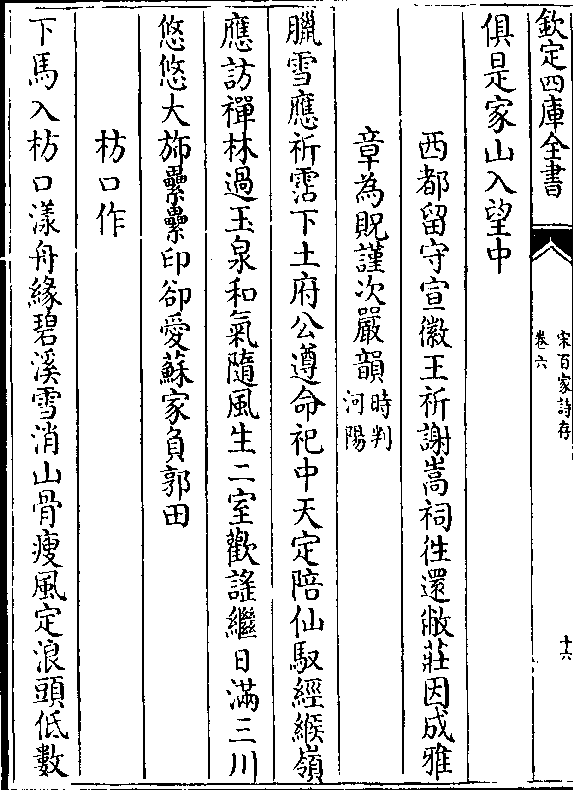 欽定四庫全書
宋百家詩存
卷六
十六
俱是家山入望中
西都留守宣徽王祈謝嵩祠徃還敝莊因成雅
章為貺謹次嚴韻時判河陽
臘雪應祈霑下土府公遵命祀中天定陪仙馭經緱嶺
應訪禪林過玉泉和氣隨風生二室歡謠繼日滿三川
悠悠大斾纍纍印卻愛蘇家負郭田
枋口作
下馬入枋口漾舟緣碧溪雪消山骨瘦風定浪頭低數